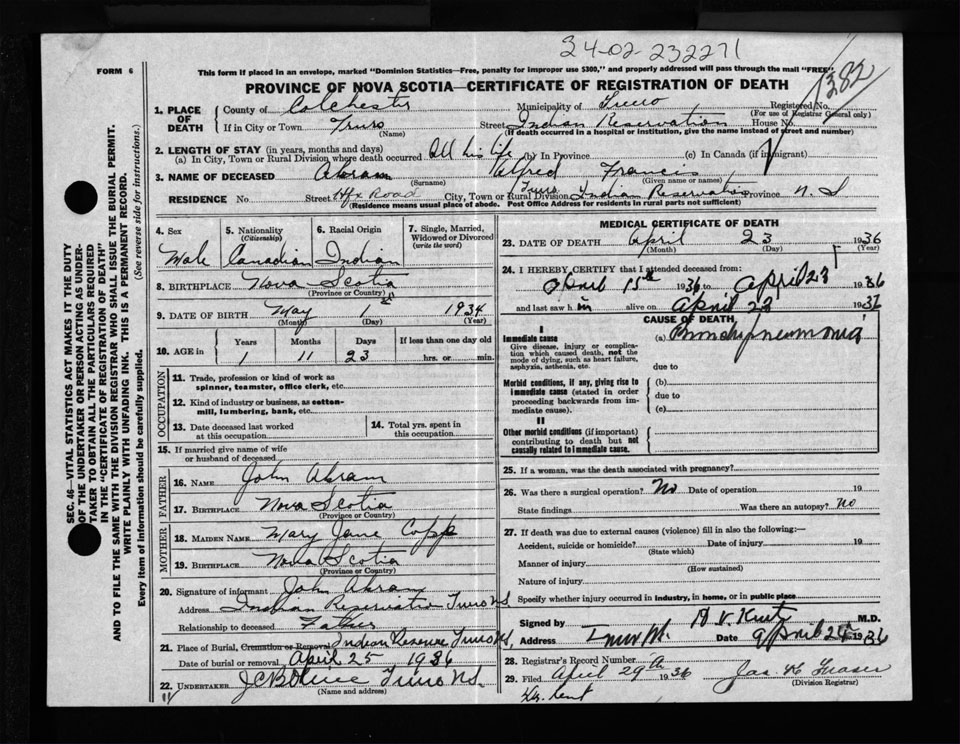 24-02-232271
FORM 6
This form if placed in an envelope, marked "Dominion Statistics—Free, penalty for improper use $300," and properly addressed will pass through the mail "FREE"
PROVINCE OF NOVA SCOTIA—CERTIFICATE OF REGISTRATION OF DEATH
1382
1. PLACE OF DEATH County of Colchester Municipality of Truro Registered No.
(For use of Registrar General only)
If in City or Town Truro Street Indian Reservation House No.
(Name) (If death occurred in a hospital or institution, give the name instead of street and number)
2. LENGTH OF STAY (in years, months and days)
(a) In City, Town or Rural Division where death occurred All his life (b) In Province (c) In Canada (if immigrant)
3. NAME OF DECEASED Abram Alfred Francis
(Surname) (Given name or names)
RESIDENCE No Street Hfx Road City, Town or Rural Division Truro Indian Reservation Province N. S
(Residence means usual place of abode. Post Office Address for residents in rural parts not sufficient)
SEC. 46—VITAL STATISTICS ACT MAKES IT THE DUTY
OF THE UNDERTAKER OR PERSON ACTING AS UNDER-
TAKER TO OBTAIN ALL THE PARTICULARS REQUIRED
IN THE "CERTIFICATE OF REGISTRATION OF DEATH"
AND TO FILE THE SAME WITH THE DIVISION REGISTRAR WHO SHALL ISSUE THE BURIAL PERMIT.
WRITE PLAINLY WITH UNFADING INK. THIS IS A PERMANENT RECORD.
Every item of Information should be carefully supplied. (See reverse side for instructions.)
4. Sex 5. Nationality (Citizenship) 6. Racial Origin 7. Single, Married, Widowed or Divorced (write the word)
Male Canadian Indian
8. BIRTHPLACE Nova Scotia
(Province or Country)
9. DATE OF BIRTH May 1st 1934
(Month) (Day) (Year)
10. AGE in Years Months Days If less than one day old
1 11 23 hrs. or min.
OCCUPATION
11. Trade, profession or kind of work as
spinner, teamster, office clerk, etc.
12. Kind of industry or business, as cotton-
mill, lumbering, bank, etc.
13. Date deceased last worked
at this occupation
14. Total yrs. spent in
this occupation
15. If married give name of wife
or husband of deceased
FATHER
16. NAME John Abram
17. BIRTHPLACE Nova Scotia
(Province or Country)
MOTHER
18. MAIDEN NAME Mary Jane Copp
19. BIRTHPLACE Nova Scotia
(Province or Country)
20. Signature of informant John Abram
Address Indian Reservation Truro NS
Relationship to deceased Father
21. Place of Burial, Cremation or Removal Indian Reserve Truro NS,
Date of burial or removal April 25 1936
22. UNDERTAKER Truro NS.
(Name and address)
MEDICAL CERTIFICATE OF DEATH
23. DATE OF DEATH April 23 1936
(Month) (Day) (Year)
24. I HEREBY CERTIFY that I attended deceased from:
April 15th 1936 to April 23 1936
and last saw h im alive on April 22 1936
CAUSE OF DEATH
I
Immediate cause (a) Bronchopneumonia
Give disease, injury or complica-
tion which caused death, not the
mode of dying, such as heart failure,
asphyxia, asthenia, etc.
due to
Morbid conditions, if any, giving rise to (b)
immediate cause (stated in order due to
proceeding backwards from im-
mediate cause). (c)
II
Other morbid conditions (if important)
contributing to death but not
causally related to immediate cause.
25. If a woman, was the death associated with pregnancy?
26. Was there a surgical operation? No Date of operation 19
State findings Was there an autopsy? No
27. If death was due to external causes (violence) fill in also the following:—
Accident, suicide or homicide? Date of injury 19
(State which)
Manner of injury
(How sustained)
Nature of injury
Specify whether injury occurred in industry, in home, or in public place
Signed by H V. Kent M.D.
Address Truro N.S. Date April 25 1936
28. Registrar's Record Number
29. Filed April 29th 1936 Jas H Fraser
(Division Registrar)
Dr. Kent